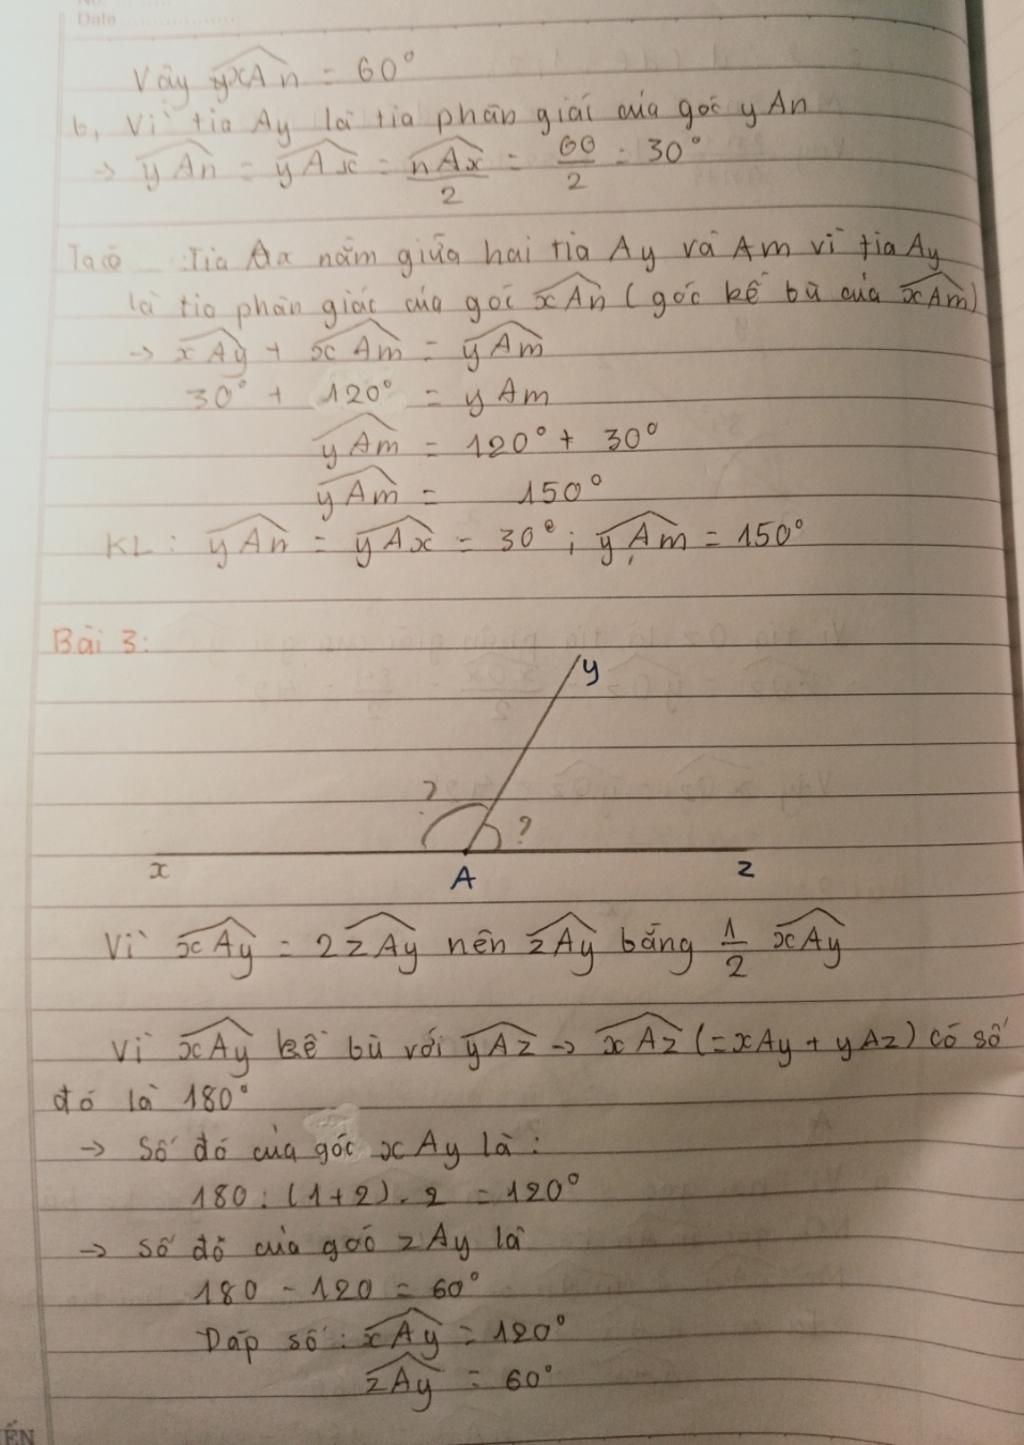 Date
Vây xAn = 60°
b, Vì tia Ay là tia phân giái của goć yAn
→ yAn = yAx = nAx/2 = 60/2 = 30°
Ta có Tia Ax nằm giữa hai tia Ay và Am vì tia Ay
là tia phân giác của góc xAn (góc kề bù của xAm)
→ xAy + xAm = yAm
30° + 120° = yAm
yAm = 120° + 30°
yAm = 150°
KL: yAn = yAx = 30°; yAm = 150°
Bài 3:
y
? ?
x A z
Vì xAy = 2zAy nên zAy bằng 1/2 xAy
Vì xAy kề bù với yAz → xAz (=xAy + yAz) có số
đó là 180°
→ Số đó của góc xAy là:
180 : (1+2) . 2 = 120°
→ Số đô của goó zAy là
180 - 120 = 60°
Dáp số: xAy = 120°
zAy = 60°
ẾN